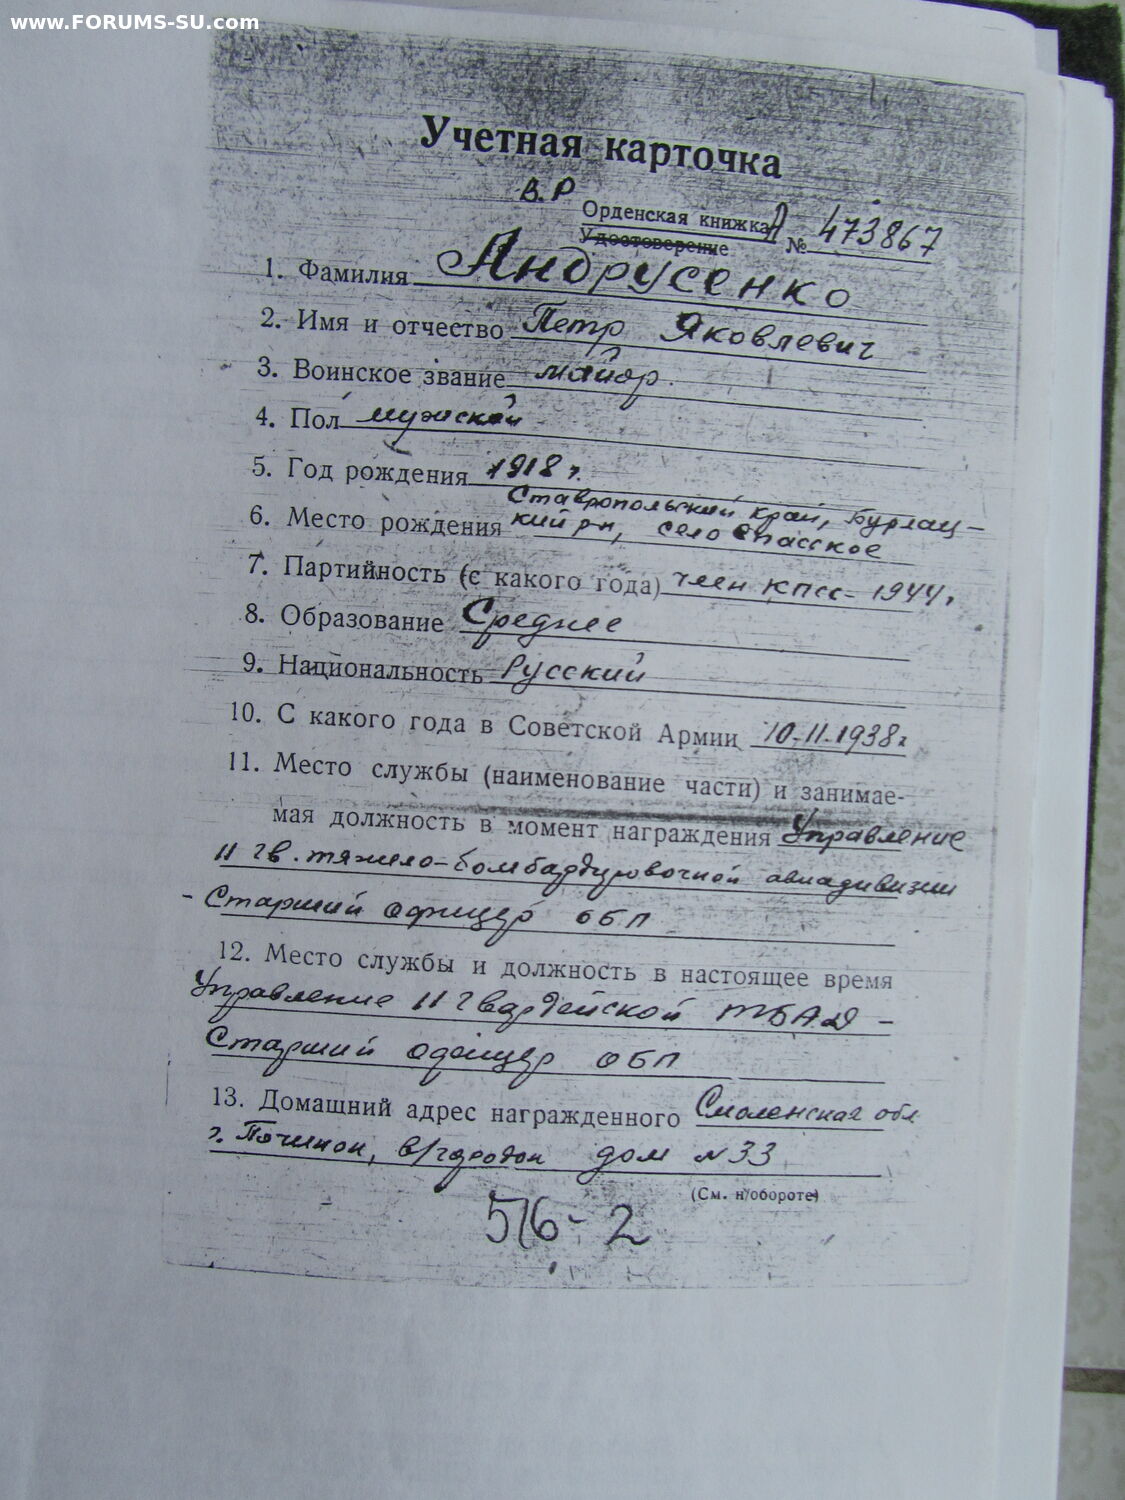 www.FORUMS-SU.com
Учетная карточка
В.Р
Орденская книжка А № 473867
Удостоверение
1. Фамилия Андрусенко
2. Имя и отчество Петр Яковлевич
3. Воинское звание майор.
4. Пол мужской
5. Год рождения 1918 г.
Ставропольский край, Бурлац-
6. Место рождения кий р-н, село Спасское
7. Партийность (с какого года) член КПСС - 1944 г.
8. Образование Среднее
9. Национальность Русский
10. С какого года в Советской Армии 10-11-1938 г
11. Место службы (наименование части) и занимае-
мая должность в момент награждения Управление
11 гв. тяжело-бомбардировочной авиадивизии
- Старший офицер ОБП
12. Место службы и должность в настоящее время
Управление 11 Гвардейской ТБАД -
Старший офицер ОБП
13. Домашний адрес награжденного Смоленская обл
г. Починок, в/городок дом N 33
(См. н/обороте)
516-2